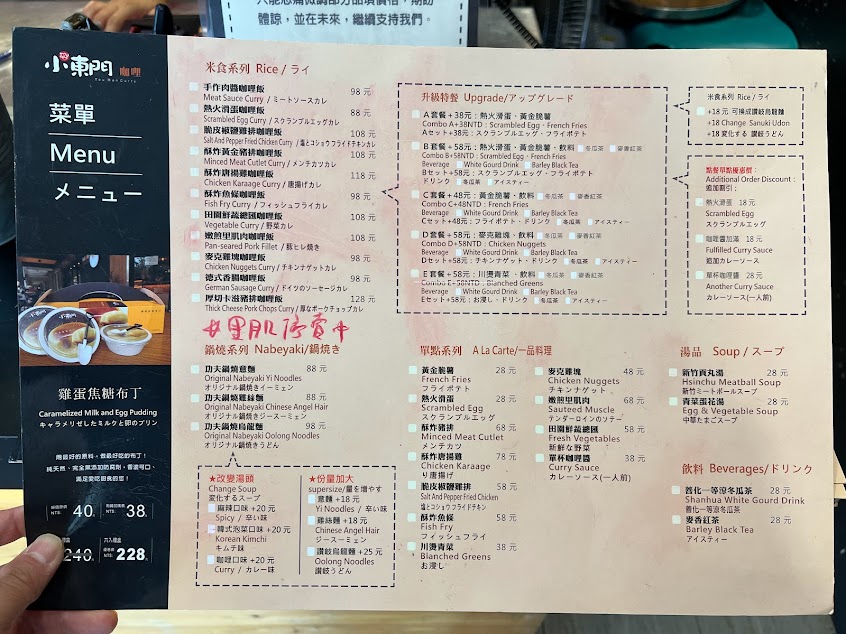 體諒,並在未來,繼續支持我們。
小東門 咖哩
菜單
Menu
メニュー
雞蛋焦糖布丁
Caramelized Milk and Egg Pudding
キャラメリゼしたミルクと卵のプリン
簡最好的原料,做最好吃的布丁!
純天然、完全無添加防腐劑,香濃可口、
滿足愛吃甜食的您!
NT$ 40. NT$ 38.
240. 六入禮盒 NT$ 228.
米食系列 Rice / ライ
手作肉醬咖哩飯 98 元
Meat Sauce Curry / ミートソースカレ
熱火滑蛋咖哩飯 88 元
Scrambled Egg Curry / スクランブルエッグカレ
脆皮椒鹽雞排咖哩飯 108 元
Salt And Pepper Fried Chicken Curry / 塩とコショウフライドチキンカレ
酥炸黃金豬排咖哩飯 108 元
Minced Meat Cutlet Curry / メンチカツカレ
酥炸唐揚雞咖哩飯 118 元
Chicken Karaage Curry / 唐揚げカレ
酥炸魚條咖哩飯 98 元
Fish Fry Curry / フィッシュフライカレ
田園鮮蔬總匯咖哩飯 108 元
Vegetable Curry / 野菜カレ
嫩煎里肌肉咖哩飯 108 元
Pan-seared Pork Fillet / 豚ヒレ焼き
麥克雞塊咖哩飯 98 元
Chicken Nuggets Curry / チキンナゲットカレ
德式香腸咖哩飯 98 元
German Sausage Curry / ドイツのソーセージカレ
厚切卡滋豬排咖哩飯 128 元
Thick Cheese Pork Chops Curry / 厚なポークチョップカレ
里肌停賣中
鍋燒系列 Nabeyaki/鍋焼き
功夫鍋燒意麵 88 元
Original Nabeyaki Yi Noodles
オリジナル鍋焼きイーミェン
功夫鍋燒雞絲麵 88 元
Original Nabeyaki Chinese Angel Hair
オリジナル鍋焼きジースーミェン
功夫鍋燒烏龍麵 98 元
Original Nabeyaki Oolong Noodles
オリジナル鍋焼きうどん
★改變湯頭
Change Soup
変化するスープ
麻辣口味 +20 元
Spicy / 辛い味
韓式泡菜口味 +20 元
Korean Kimchi
キムチ味
咖哩口味 +20 元
Curry / カレー味
★份量加大
supersize/量を増やす
意麵 +18 元
Yi Noodles / 辛い味
雞絲麵 +18 元
Chinese Angel Hair
ジースーミェン
讚岐烏龍麵 +25 元
Oolong Noodles
讚岐うどん
升級特餐 Upgrade/アップグレード
A 套餐 +38元:熱火滑蛋、黃金脆薯
Combo A+38NTD : Scrambled Egg、French Fries
Aセット+38元:スクランブルエッグ・フライポテト
B 套餐 +58元:熱火滑蛋、黃金脆薯、飲料 冬瓜茶 麥香紅茶
Combo B+58NTD : Scrambled Egg、French Fries
Beverage White Gourd Drink Barley Black Tea
Bセット+58元:スクランブルエッグ・フライポテト
ドリンク 冬瓜茶 アイスティー
C 套餐 +48元:黃金脆薯、飲料 冬瓜茶 麥香紅茶
Combo C+48NTD : French Fries
Beverage White Gourd Drink Barley Black Tea
Cセット+48元:フライポテト・ドリンク 冬瓜茶 アイスティー
D 套餐 +58元:麥克雞塊、飲料 冬瓜茶 麥香紅茶
Combo D+58NTD : Chicken Nuggets
Beverage White Gourd Drink Barley Black Tea
Dセット+58元:チキンナゲット・ドリンク 冬瓜茶 アイスティー
E 套餐 +58元:川燙青菜、飲料 冬瓜茶 麥香紅茶
Combo E+58NTD : Blanched Greens
Beverage White Gourd Drink Barley Black Tea
Eセット+58元:お浸し・ドリンク 冬瓜茶 アイスティー
米食系列 Rice / ライ
+18 元 可換成讚岐烏龍麵
+18 Change Sanuki Udon
+18 変化する 讃岐うどん
點餐單點優惠價:
Additional Order Discount :
追加割引:
熱火滑蛋 18 元
Scrambled Egg
スクランブルエッグ
咖哩醬加滿 18 元
Fulfilled Curry Sauce
追加カレーソース
單杯咖哩醬 28 元
Another Curry Sauce
カレーソース(一人前)
單點系列 A La Carte/一品料理
黃金脆薯 28 元
French Fries
フライポテト
熱火滑蛋 28 元
Scrambled Egg
スクランブルエッグ
酥炸豬排 68 元
Minced Meat Cutlet
メンチカツ
酥炸唐揚雞 78 元
Chicken Karaage
から揚げ
脆皮椒鹽雞排 58 元
Salt And Pepper Fried Chicken
塩とコショウフライドチキン
酥炸魚條 58 元
Fish Fry
フィッシュフライ
川燙青菜 38 元
Blanched Greens
お浸し
麥克雞塊 48 元
Chicken Nuggets
チキンナゲット
嫩煎里肌肉 68 元
Sauteed Muscle
テンダーロインのソテー
田園鮮蔬總匯 58 元
Fresh Vegetables
新鮮な野菜
單杯咖哩醬 38 元
Curry Sauce
カレーソース(一人前)
湯品 Soup / スープ
新竹貢丸湯 28 元
Hsinchu Meatball Soup
新竹ミートボールスープ
青菜蛋花湯 28 元
Egg & Vegetable Soup
中華たまごスープ
飲料 Beverages/ドリンク
善化一等涼冬瓜茶 28 元
Shanhua White Gourd Drink
善化一等冬瓜茶
麥香紅茶 28 元
Barley Black Tea
アイスティー